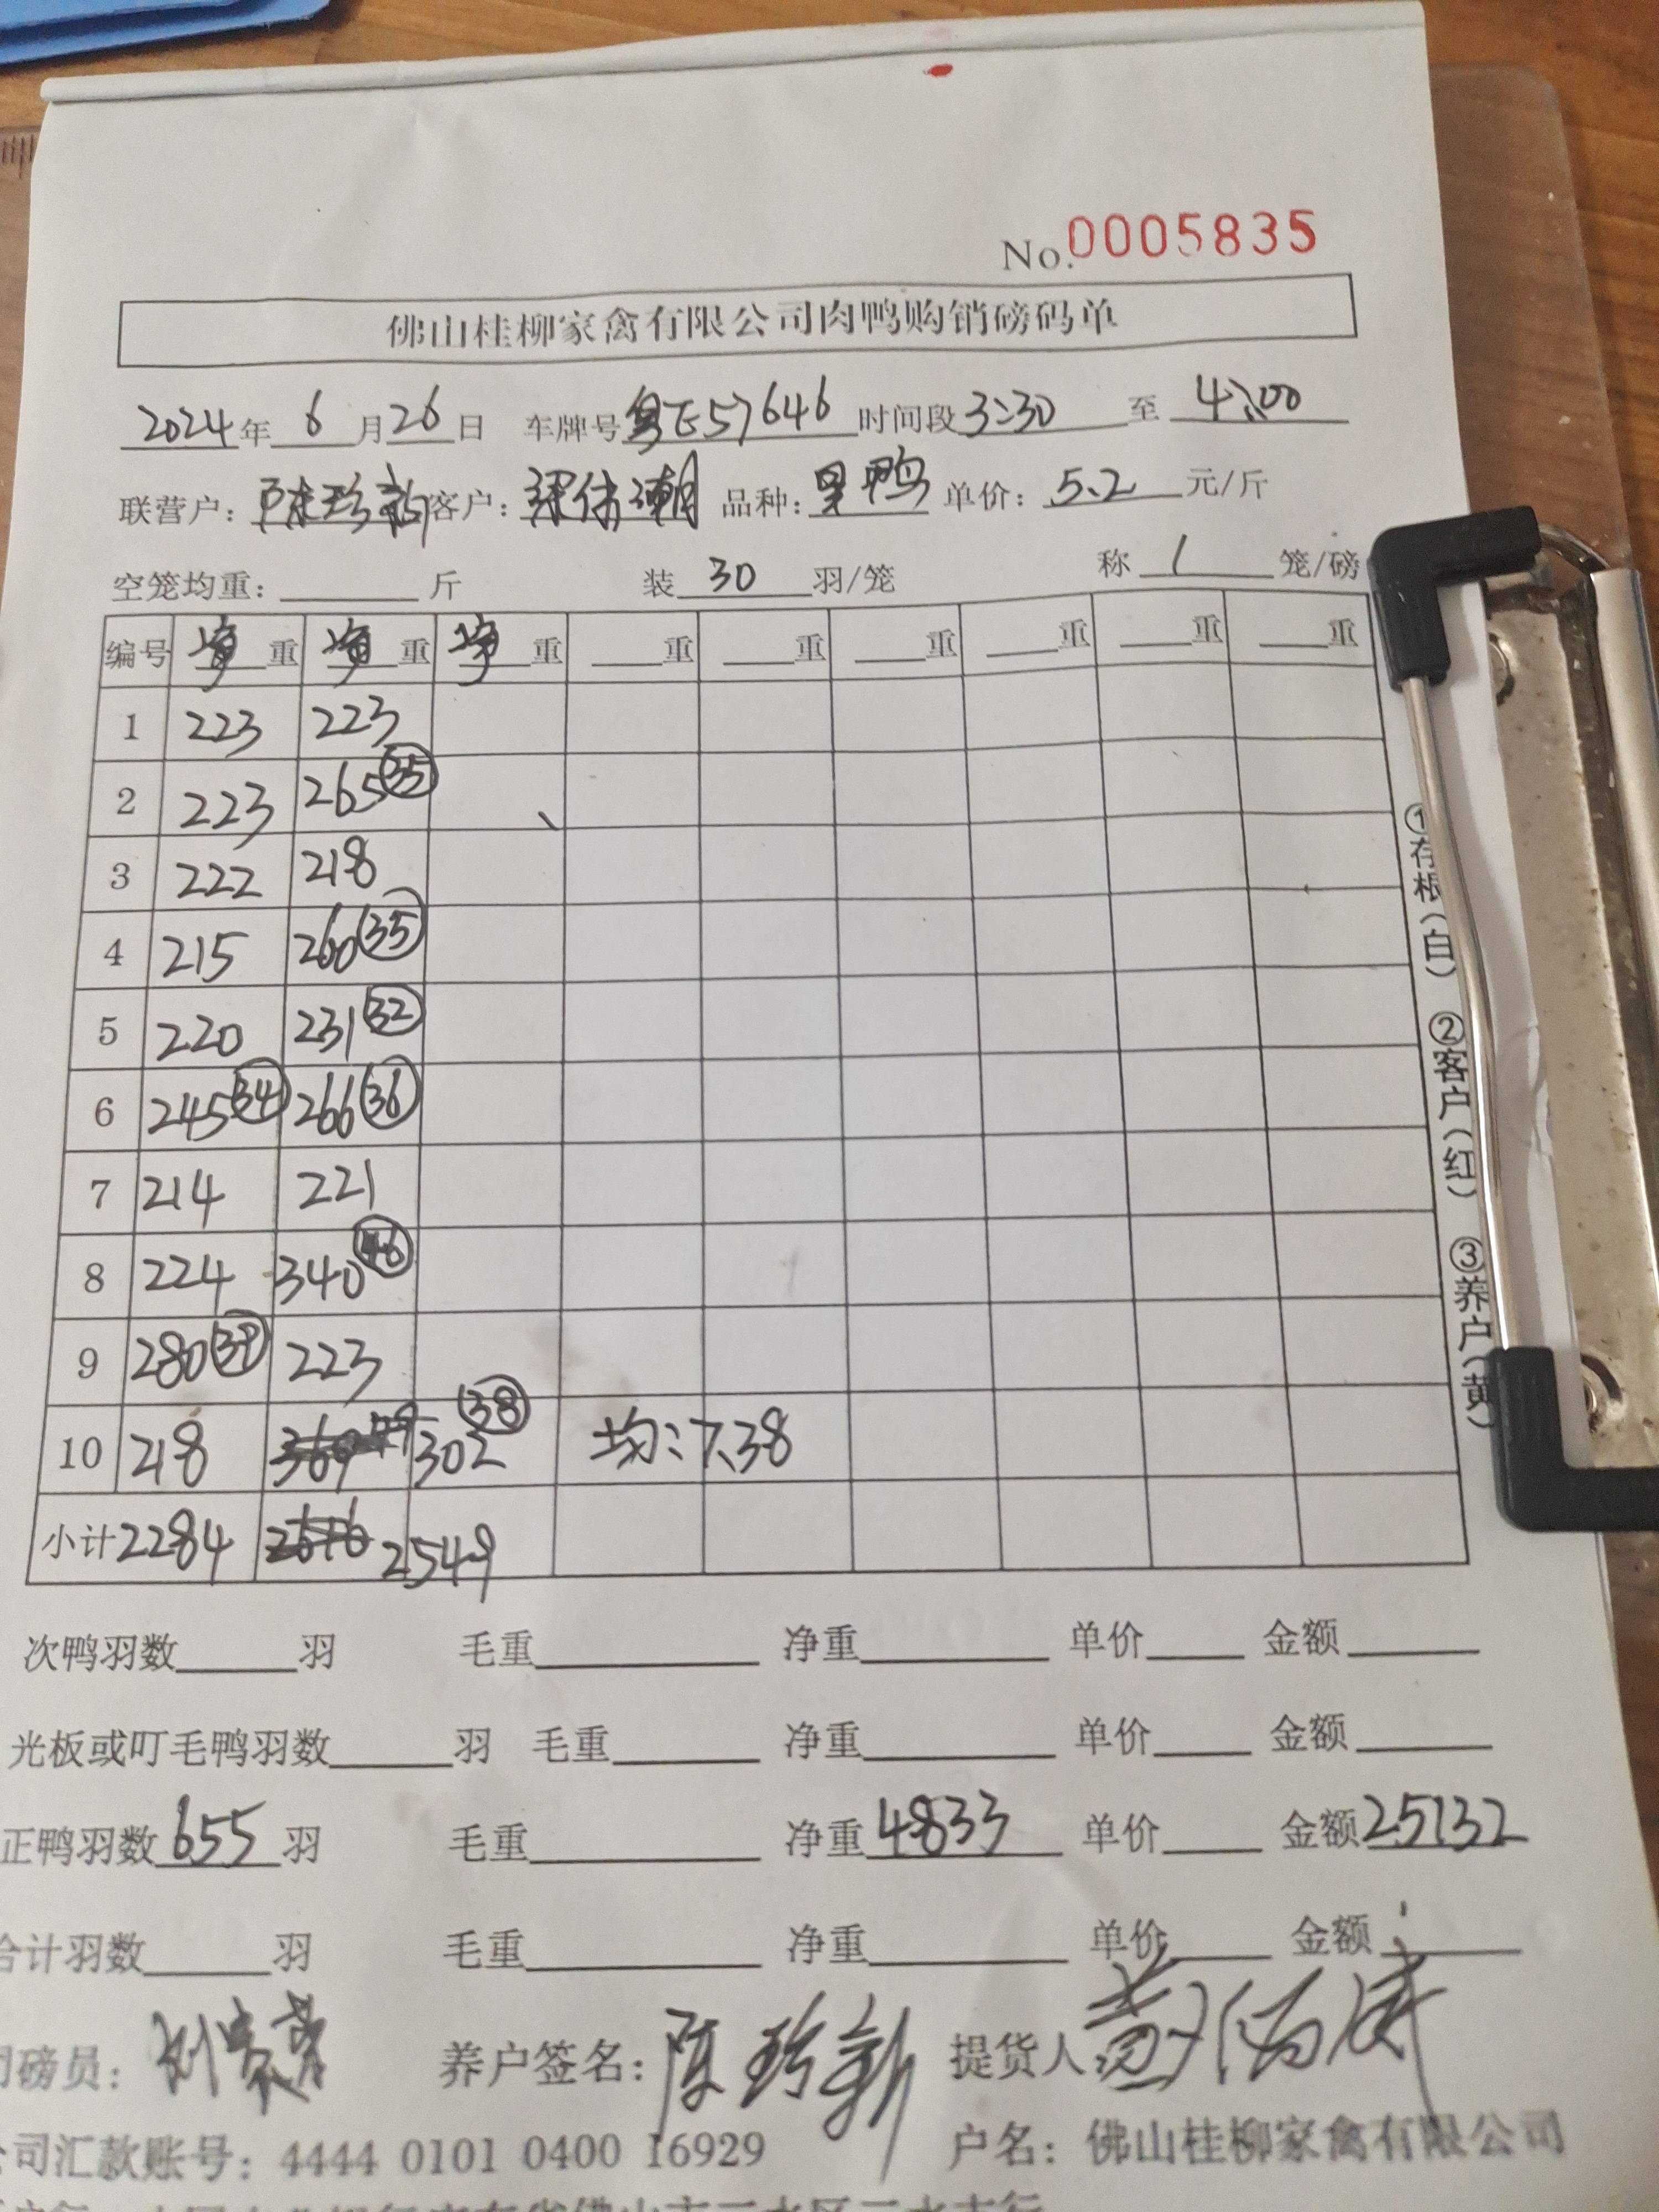 No.0005835
佛山桂柳家禽有限公司肉鸭购销磅码单
2024年 6 月 26 日 车牌号 粤E57646 时间段 3:30 至 4:00
联营户: 陈珍新 客户: 梁伟潮 品种: 鸭 单价: 5.2 元/斤
空笼均重: 斤 装 30 羽/笼 称 1 笼/磅
编号 净重 净重 净重 重 重 重 重 重 重
1 223 223
2 223 265 35
3 222 218
4 215 260 35
5 220 231 32
6 245 34 266 36
7 214 221
8 224 340 46
9 280 39 223
10 218 302 38 均:7.38
小计 2284 2549
次鸭羽数 羽 毛重 净重 单价 金额
光板或叮毛鸭羽数 羽 毛重 净重 单价 金额
正鸭羽数 655 羽 毛重 净重 4833 单价 金额 25132
合计羽数 羽 毛重 净重 单价 金额
司磅员: 养户签名: 陈珍新 提货人
公司汇款账号: 4444 0101 0400 16929 户名: 佛山桂柳家禽有限公司
①存根(白) ②客户(红) ③养户(黄)